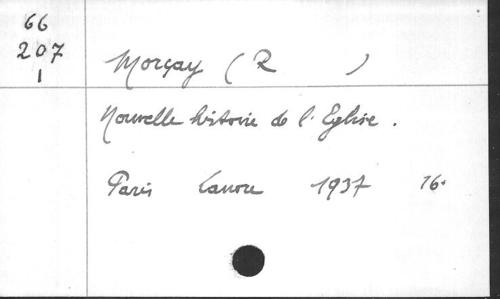 66
207
1
Morçay (R )
Nouvelle histoire de l'Eglise.
Paris Lanore 1937 16°